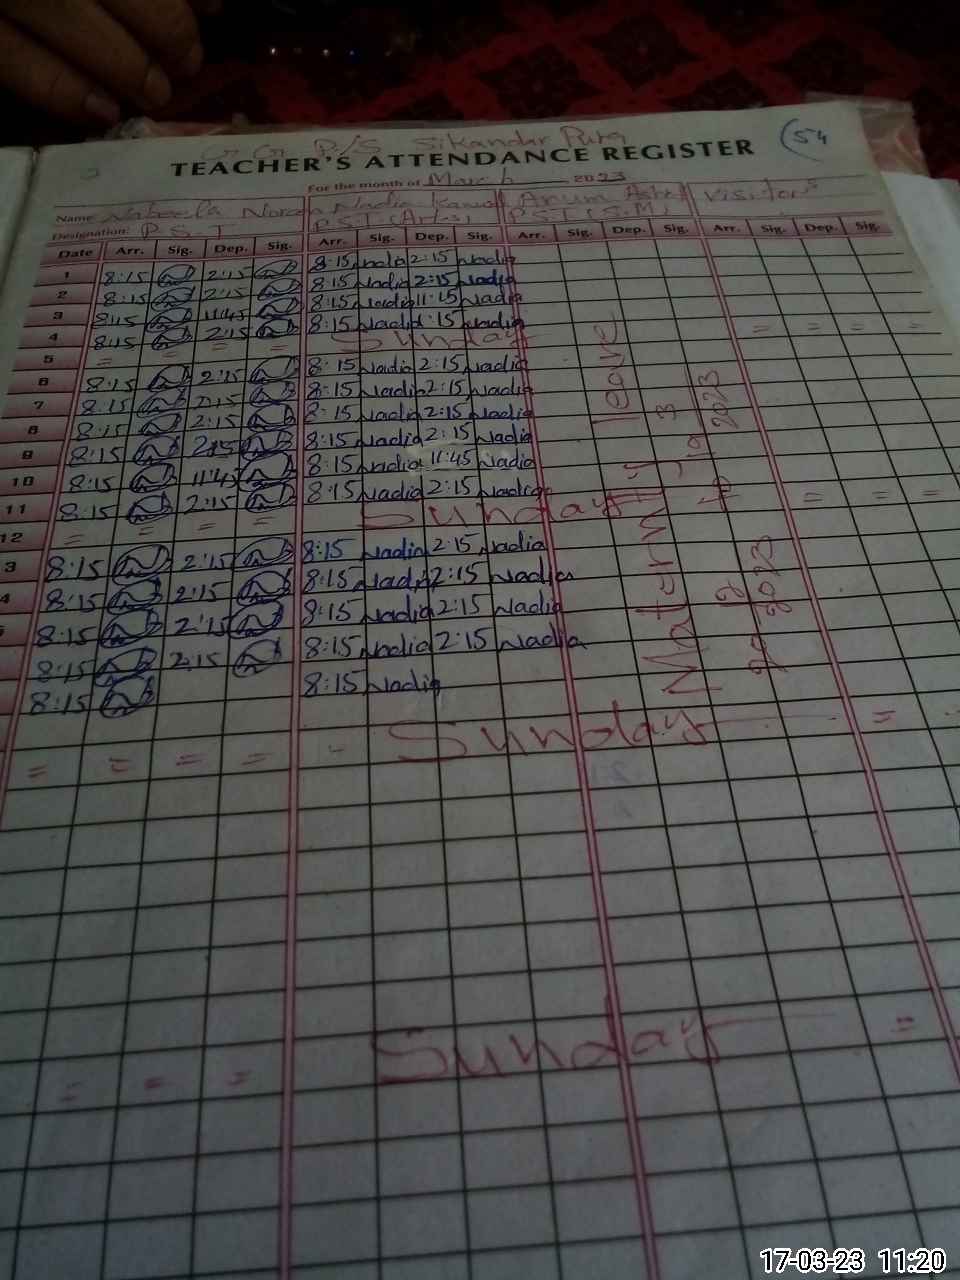 G.G. P/S Sikandar Pura
54
TEACHER'S ATTENDANCE REGISTER
For the month of March 2023
Name Nabeela Noreen Nadia Kanwal Anum Ashraf Visitors
Designation: P.S.T P.S.T (Arts) P.S.T (S.M)
Date Arr. Sig. Dep. Sig. Arr. Sig. Dep. Sig. Arr. Sig. Dep. Sig. Arr. Sig. Dep. Sig.
1 8:15 2:15 8:15 Nadia 2:15 Nadia
2 8:15 2:15 8:15 Nadia 2:15 Nadia
3 8:15 11:45 8:15 Nadia 11:15 Nadia
4 8:15 2:15 8:15 Nadia 2:15 Nadia
5 = = = = Sunday = = = =
6 8:15 2:15 8:15 Nadia 2:15 Nadia
7 8:15 2:15 8:15 Nadia 2:15 Nadia
8 8:15 2:15 8:15 Nadia 2:15 Nadia
9 8:15 2:15 8:15 Nadia 2:15 Nadia
10 8:15 11:45 8:15 Nadia 11:45 Nadia
11 8:15 2:15 8:15 Nadia 2:15 Nadia
12 = = = = Sunday = = =
3 8:15 2:15 8:15 Nadia 2:15 Nadia
4 8:15 2:15 8:15 Nadia 2:15 Nadia
8:15 2:15 8:15 Nadia 2:15 Nadia
8:15 2:15 8:15 Nadia 2:15 Nadia
8:15 8:15 Nadia
= = = = - Sunday =
= = = Sunday =
Maternity leave
2023
3
2023
17-03-23 11:20